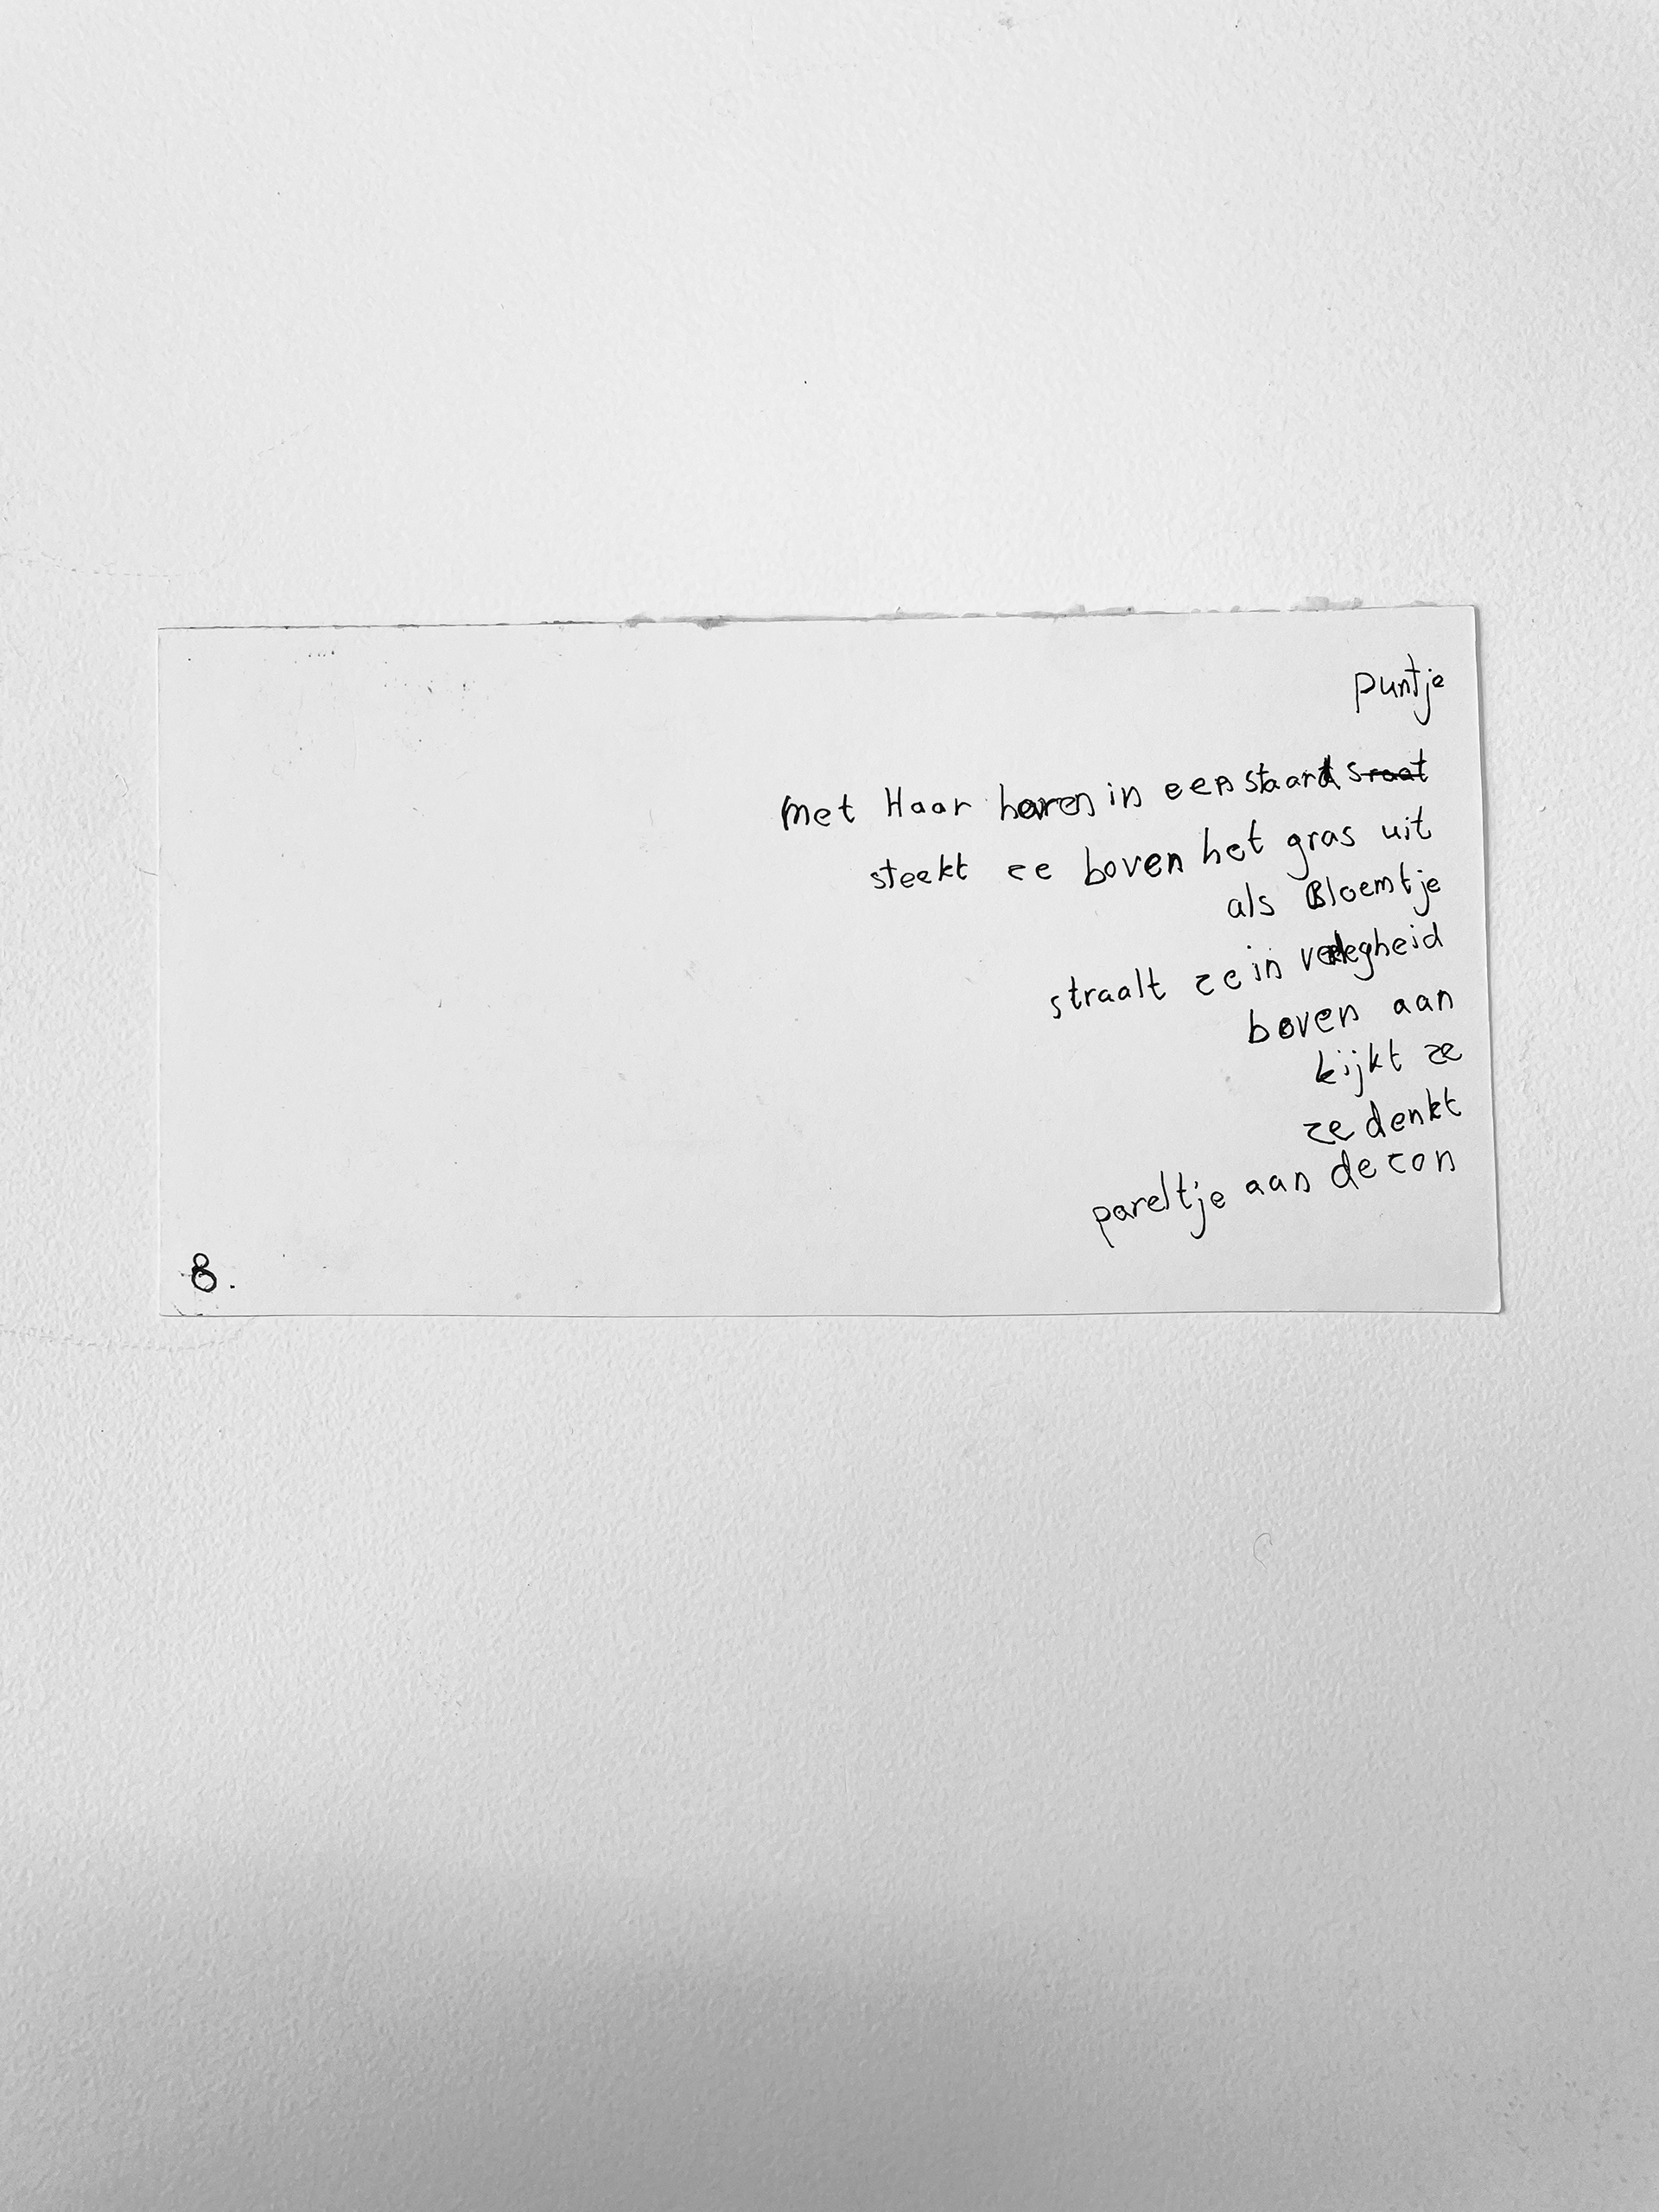 puntje
met Haar haren in een staart
steekt ze boven het gras uit
als Bloemtje
straalt ze in verlegheid
boven aan
kijkt ze
ze denkt
pareltje aan de zon
8.